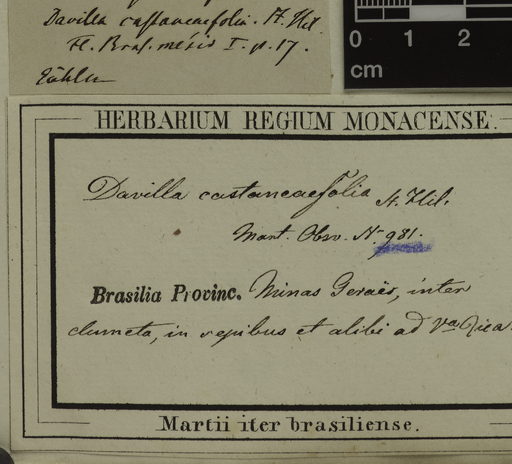 Davilla castaneaefolia. St. Hil.
Fl. Bras. mérid I. p. 17.
0 1 2
cm
HERBARIUM REGIUM MONACENSE.
Davilla castaneaefolia St. Hil.
Mart. Obsv. N. 981.
Brasilia Provinc. Minas Geraës, inter
dumeta, in sepibus et alibi ad Va Rica.
Martii iter brasiliense.